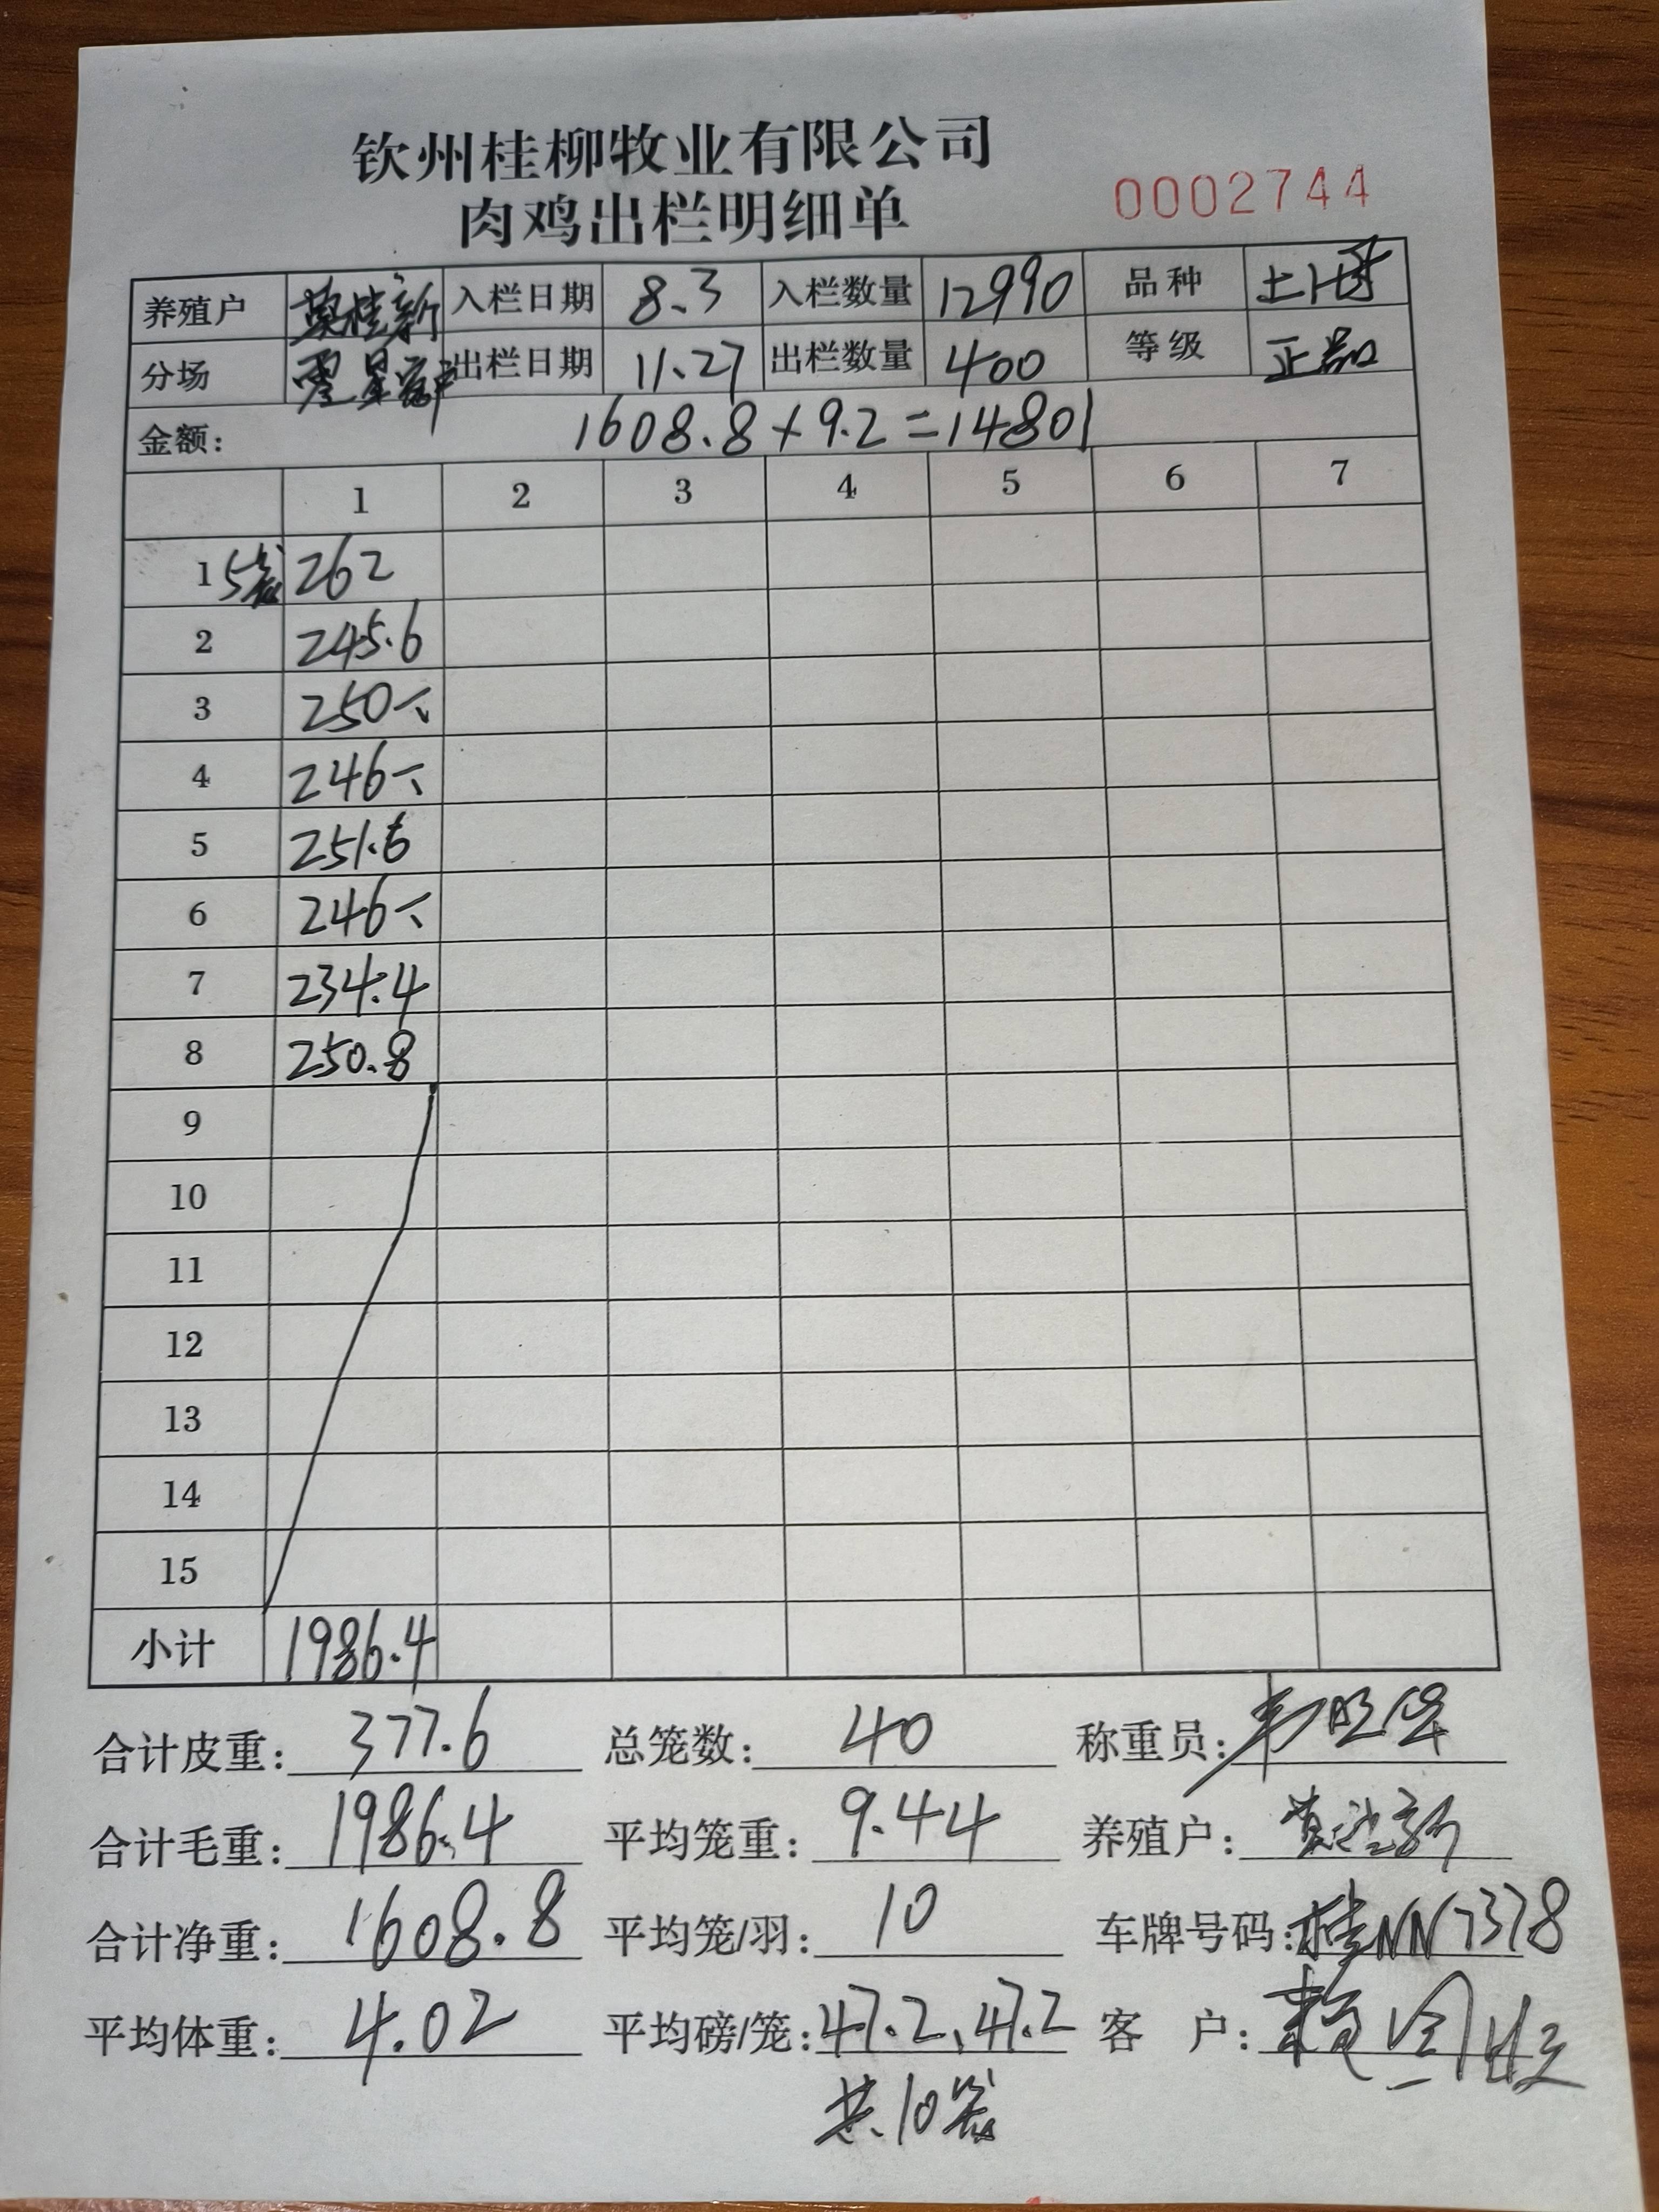 钦州桂柳牧业有限公司
肉鸡出栏明细单
0002744
养殖户 莫桂新 入栏日期 8.3 入栏数量 12990 品种 土
分场 零星客户 出栏日期 11.27 出栏数量 400 等级 正品
金额: 1608.8×9.2=14801
1 2 3 4 5 6 7
1 5笼 262
2 245.6
3 250
4 246
5 251.6
6 246
7 234.4
8 250.8
9
10
11
12
13
14
15
小计 1986.4
合计皮重: 377.6 总笼数: 40 称重员:
合计毛重: 1986.4 平均笼重: 9.44 养殖户: 莫桂新
合计净重: 1608.8 平均笼/羽: 10 车牌号码: 桂NN7378
平均体重: 4.02 平均磅/笼: 47.2、47.2 客 户:
共10笼